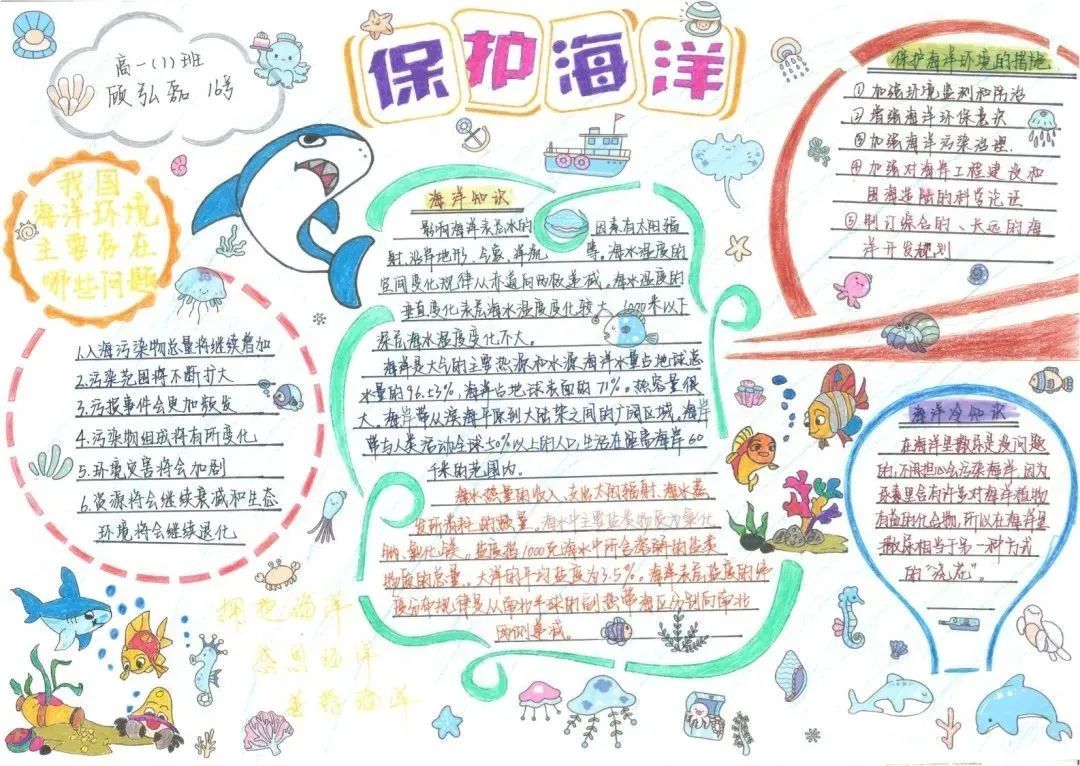 保护海洋
高一(1)班
顾弘磊 16号
我国
海洋环境
主要存在
哪些问题
1.入海污染物总量将继续增加
2.污染范围将不断扩大
3.污损事件会更加频发
4.污染物组成将有所变化
5.环境灾害将会加剧
6.资源将会继续衰减和生态
环境将会继续退化
拥抱海洋
感恩海洋
善待海洋
海洋知识
影响海洋表层水的 因素有太阳辐
射、沿岸地形、气象、洋流 等。海水温度的
空间变化规律从赤道向两极递减。海水温度的
垂直变化表层海水温度变化较大,1000米以下
深层海水温度变化不大。
海洋是大气的主要热源和水源,海洋水量占地球总
水量的96.53%,海洋占地球表面的71%。热容量很
大。海岸带从滨海平原到大陆架之间的广阔区域,海岸
带与人类活动全球50%以上的人口,生活在距离海岸60
千米的范围内。
海水热量的收入、支出太阳辐射、海水蒸
发所消耗的热量。海水中主要盐类物质为氯化
钠、氯化镁。盐度指1000克海水中所含溶解的盐类
物质的总量。大洋的平均盐度为3.5%。海洋表层盐度的
分布规律是从南北半球的副热带海区分别向南北
两侧递减。
保护海洋环境的措施
①加强环境监测和防治
②增强海洋环保意识
③加强海洋污染治理.
④加强对海岸工程建设和
围海造陆的科学论证
⑤制订综合的、长远的海
洋开发规划
海洋冷知识
在海洋里撒尿是没问题
的,不用担心会污染海洋,因为
尿素里含有许多对海洋植物
有益的化合物,所以在海洋里
撒尿相当于另一种方式
的“浇花”。